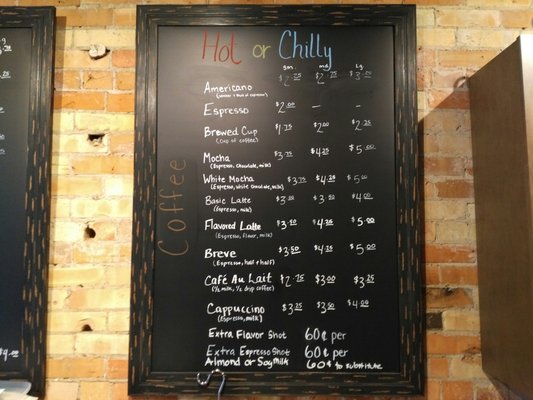 Hot or Chilly
Coffee
sm. md. Lg.
Americano $2.25 $2.75 $3.00
Espresso $2.00 – –
Brewed Cup $1.75 $2.00 $2.25
(Cup of coffee)
Mocha $3.75 $4.25 $5.00
(Espresso, chocolate, milk)
White Mocha $3.75 $4.25 $5.00
(Espresso, white chocolate, milk)
Basic Latte $3.00 $3.50 $4.00
(Espresso, milk)
Flavored Latte $3.50 $4.25 $5.00
(Espresso, flavor, milk)
Breve $3.50 $4.25 $5.00
(Espresso, half & half)
Café Au Lait $2.75 $3.00 $3.25
(½ milk, ½ drip coffee)
Cappuccino $3.25 $3.50 $4.00
(Espresso, milk)
Extra Flavor Shot 60¢ per
Extra Espresso Shot 60¢ per
Almond or Soy Milk 60¢ to substitute